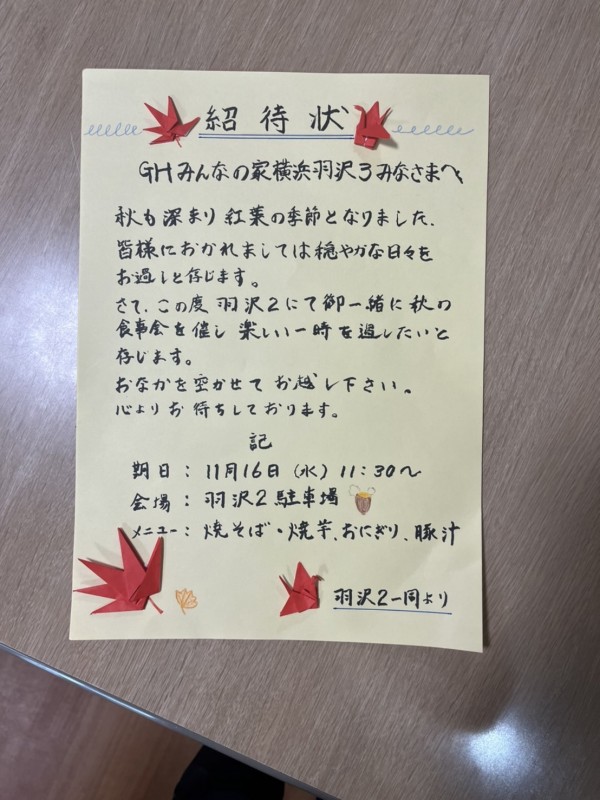 紹待状
GHみんなの家横浜羽沢3みなさまへ
秋も深まり紅葉の季節となりました、
皆様におかれましては穏やかな日々を
お過しと存じます。
さて、この度 羽沢2にて御一緒に秋の
食事会を催し 楽しい一時を過したいと
存じます。
おなかを空かせて お越し下さい。
心よりお待ちしております。
記
期日：11月16日（水）11:30〜
会場：羽沢2駐車場
メニュー：焼そば・焼芋、おにぎり、豚汁
羽沢2一同より